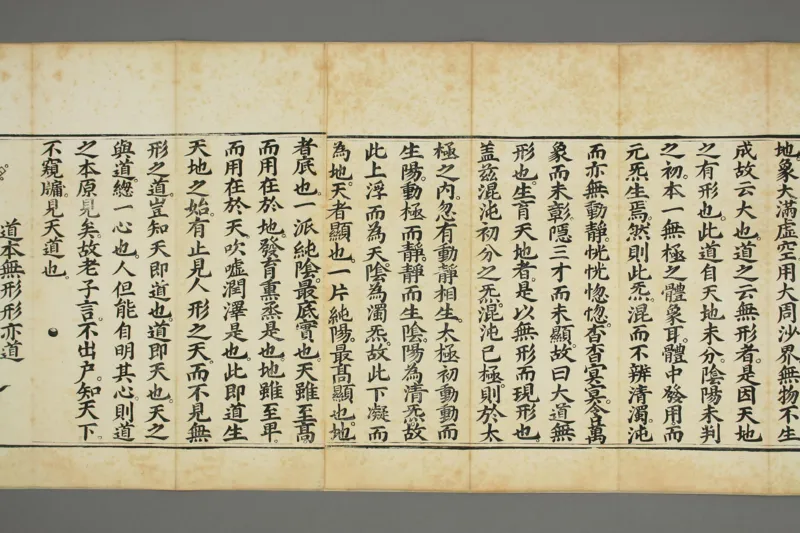 地象大滿虛空用大周沙界無物不生
成故云大也道之云無形者是因天地
之有形也此道自天地未分陰陽未判
之初本一無極之體象耳體中發用而
元炁生焉然則此炁混而不辨清濁沌
而亦無動靜恍恍惚惚杳杳冥冥含萬
象而未彰隱三才而未顯故曰大道無
形也生育天地者是以無形而現形也
蓋茲混沌初分之炁混沌已極則於太
極之內忽有動靜相生太極初動動而
生陽動極而靜靜而生陰陽為清炁故
此上浮而為天陰為濁炁故此下凝而
為地天者顯也一片純陽最高顯也地
者底也一派純陰最底實也天雖至高
而用在於地發育熏烝是也地雖至卑
而用在於天吹噓潤澤是也此即道生
天地之始有止見人形之天而不見無
形之道豈知天即道也道即天也天之
與道總一心也人但能自明其心則道
之本原見矣故老子言不出戶知天下
不窺牖見天道也
道本無形形亦道